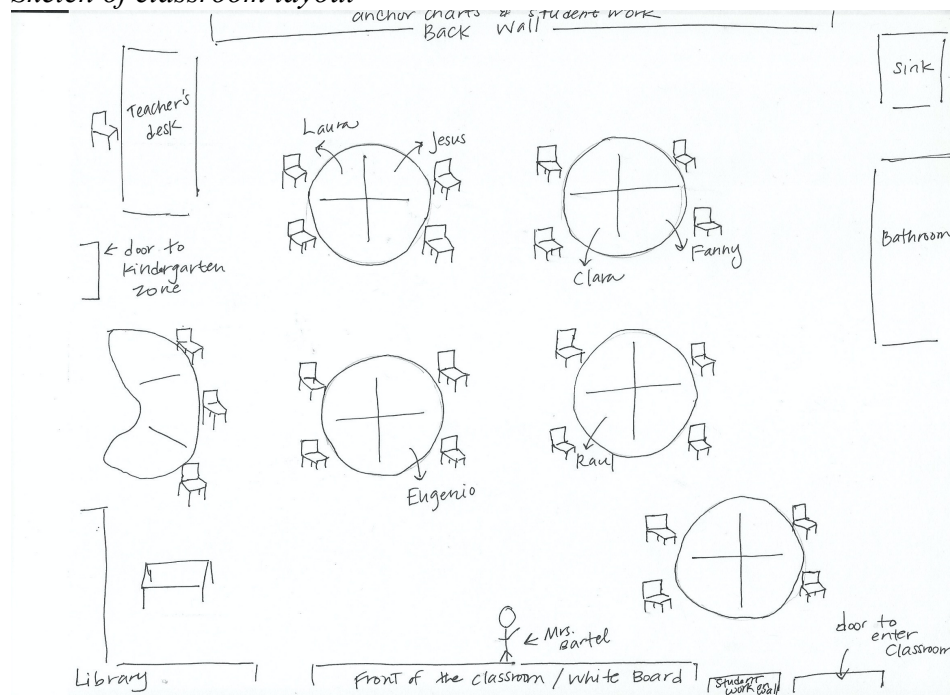 Sketch of classroom layout
anchor charts & student work
Back Wall
Sink
Teacher's
desk
Laura
Jesus
Bathroom
Fanny
Clara
door to
Kindergarten
zone
Raul
Eugenio
Mrs.
Bartel
door to
enter
Classroom
Library
Front of the classroom / White Board
Student
work on
wall